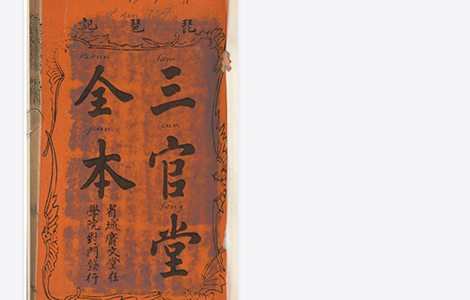 琵琶記
三官堂
全本
省城廣文堂在
學院對門發行